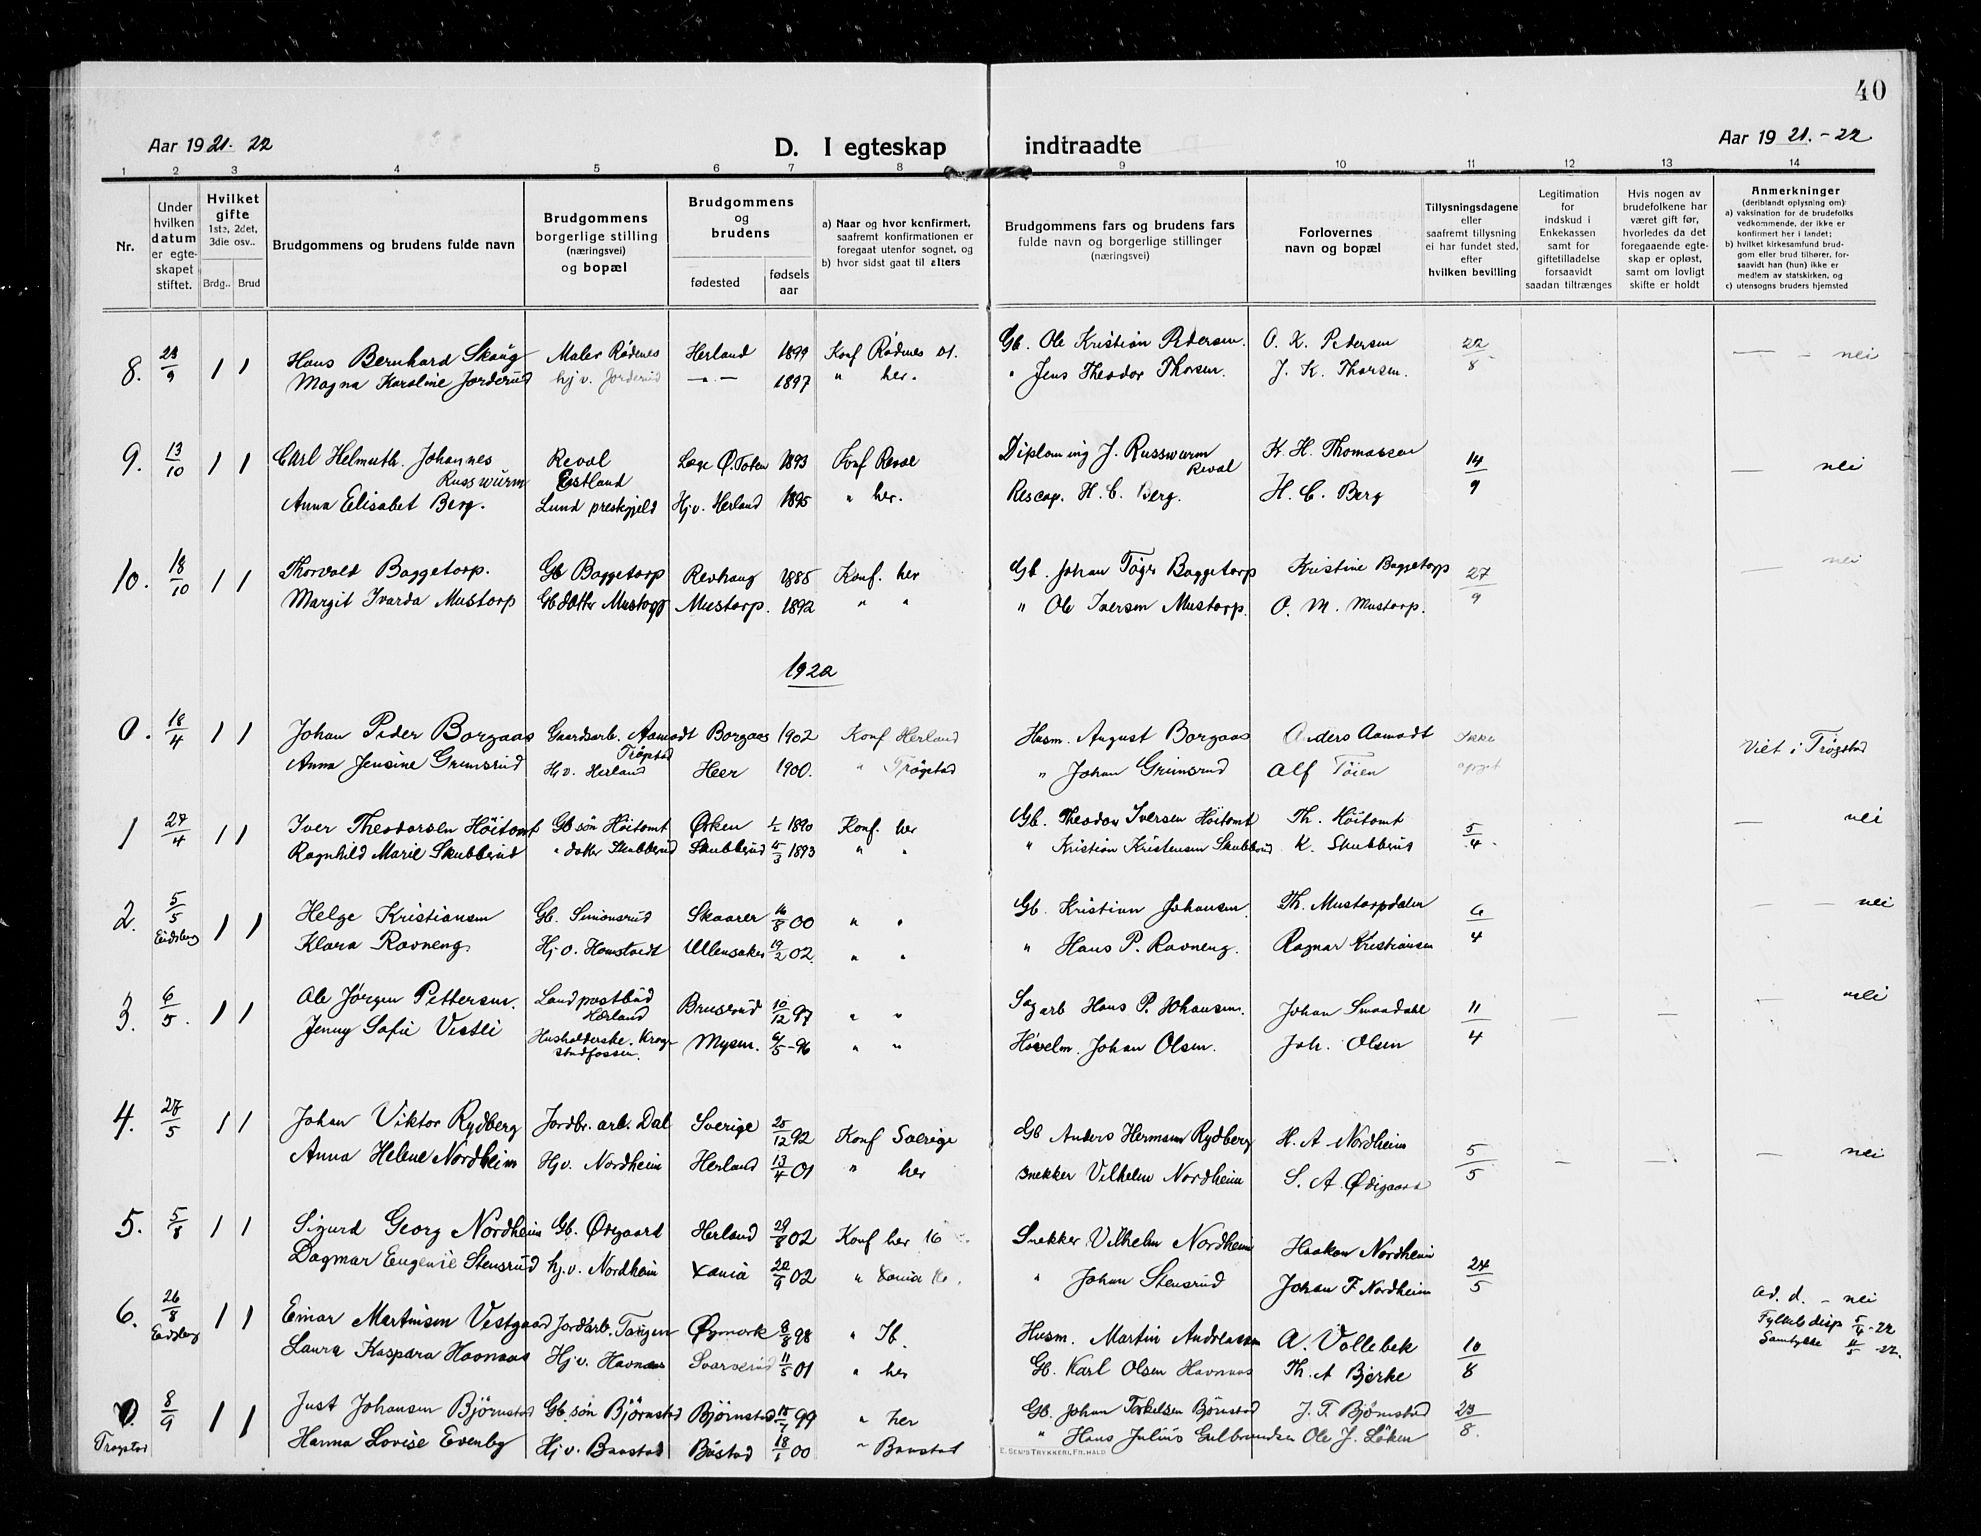 40
Aar 1921-22
D. I egteskap indtraadte
Aar 1921.-22
1 2 3 4 5 6 7 8 9 10 11 12 13 14
Nr.
Under hvilken datum er egteskapet stiftet.
Hvilket gifte 1ste, 2det, 3die osv..
Brdg.. Brud
Brudgommens og brudens fulde navn
Brudgommens borgerlige stilling (næringsvei) og bopæl
Brudgommens og brudens
fødested
fødsels aar
a) Naar og hvor konfirmert, saafremt konfirmationen er foregaat utenfor sognet, og
b) hvor sidst gaat til alters
Brudgommens fars og brudens fars fulde navn og borgerlige stillinger (næringsvei)
Forlovernes navn og bopæl
Tillysningsdagene eller saafremt tillysning ei har fundet sted, efter hvilken bevilling
Legitimation for indskud i Enkekassen samt for giftetilladelse forsaavidt saadan tiltrænges
Hvis nogen av brudefolkene har været gift før, hvorledes da det foregaaende egteskap er opløst, samt om lovligt skifte er holdt
Anmerkninger (deriblandt oplysning om):
a) vaksination for de brudefolks vedkommende, der ikke er konfirmert her i landet;
b) hvilket kirkesamfund brudgom eller brud tilhører, forsaavidt han (hun) ikke er medlem av statskirken, og
c) utensogns bruders hjemsted
8. 23/9 1 1 Hans Bernhard Skaug Maler Rødenes Herland 1899 Konf Rødenes 01. Gb. Ole Kristian Pedersen. O. K. Pedersen 22/8 — - nei
Magna Karoline Jorderud hj v. Jorderud —"— 1897 " her. " Jens Theodor Thorsen. J. K. Thorsen.
9. 13/10 1 1 Carl Helmuth. Johannes Russwurm Reval Estland Læge Ø. Toten 1893 Konf Reval Diplom ing J. Russwurm Reval K. H. Thomassen 14/9 — nei
Anna Elisabet Berg. Lund prestegjeld Hjv. Herland 1895 " her. Rescap. H. C. Berg. H. C. Berg
10. 18/10 1 1 Thorvald Baggetorp. Gb Baggetorp Revhaug 1885 Konf. her Gb. Johan Tøger Baggetorp Kristine Baggetorp 27/9 — nei
Margit Ivarda Mustorp Gb datter Mustorp Mustorp. 1892 " " " Ole Iversen Mustorp. O. M. Mustorp.
1922
0. 18/4 1 1 Johan Peder Borgaas Gaardsarb. Aamodt Trøgstad Borgaas 1902 Konf Herland Husm. August Borgaas Anders Aamodt Ikke Viet i Trøgstad
Anna Jensine Grimsrud Hj v. Herland Heer 1900. " Trøgstad " Johan Grimsrud Alf Tøien
1 27/4 1 1 Iver Theodorsen Høitomt Gb søn Høitomt Ørken 1/2 1890 Konf. her Gb. Theodor Iversen Høitomt Th. Høitomt 5/4. — nei
Ragnhild Marie Skubberud " datter Skubberud Skubberud 4/3 1893 " " " Kristian Kristensen Skubberud K. Skubberud
2. 5/5 Eidsberg 1 1 Helge Kristiansen Gb. Simonsrud Skaarer 16/8 00 " " Gb. Kristian Johansen. Th. Mustorpdalen 6/4 — - nei
Klara Ravneng. Hj. v. Hamstvedt Ullensaker 19/2 02. " " " Hans P. Ravneng. Ragnar Kristiansen
3. 6/5. 1 1 Ole Jørgen Pettersen. Landpostbud Herland Brusrud 10/12 97 " " Sagarb Hans P. Johansen. Johan Smaadahl 11/4 — — — nei
Jenny Sofie Vestli Husholderske. Krogstadfossen. Mysen. 6/5 - 96 " " Høvelm. Johan Olsen. Joh. Olsen
4. 27/5 1 1 Johan Viktor Rydberg Jordbr. arb. Dal Sverige 25/12 92 Konf Sverige Gb Anders Herman Rydberg H. A Nordheim 5/5 — — — nei
Anna Helene Nordheim Hj v. Nordheim Herland 13/4 01 " her Snekker Vilhelm Nordheim S. A. Ødigaard
5. 5/8 1 1 Sigurd Georg Nordheim Gb. Ødegaard Herland 29/8 02 Konf her 16 Snekker Vilhelm Nordheim Haakon Nordheim 24/5
Dagmar Eugenie Stensrud hj. v. Nordheim Xania 20/9 02 " Xania 16. " Johan Stensrud Johan F. Nordheim
6. 26/8 Eidsberg 1 1 Einar Martinsen Vestgaard Jordarb. Tangen Øymork 8/8 98 " Ib. Husm. Martin Andreassen A. Vollebek 10/8 Ad. d. - nei
Fylkets disp 5/4 -22
Samtykke 4/5 -22.
Laura Kaspara Havnaas Hj v. Havnaas Svarverud 11/5 01 " her Gb. Karl Olsen Havnaas Th. A Bjerke
Trøgstad 8/9 1 1 Just Johansen Bjørnstad Gb. søn Bjørnstad Bjørnstad 15/7 99 " her Gb. Johan Torkelsen Bjørnstad J. T. Bjørnstad 23/8.
Hanna Lovise Evenby Hj v. Baastad Båstad 18/1 00 " Baastad " Hans Julius Gulbrandsen Ole J. Løken
E. SEM'S TRYKKERI, FR. HALD